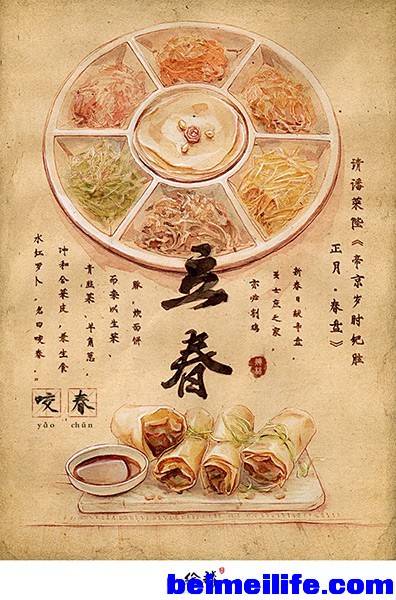 请潘莱陛《帝京岁时纪胜
正月·春盘》
新春日献辛盘
虽士庶之家
亦必割鸡
豚，炊面饼
而杂以生菜、
青韭菜、羊角葱，
冲和合菜皮，兼生食
水红萝卜，名曰咬春。"
立春
咬春
yǎo chūn
beimeilife.com